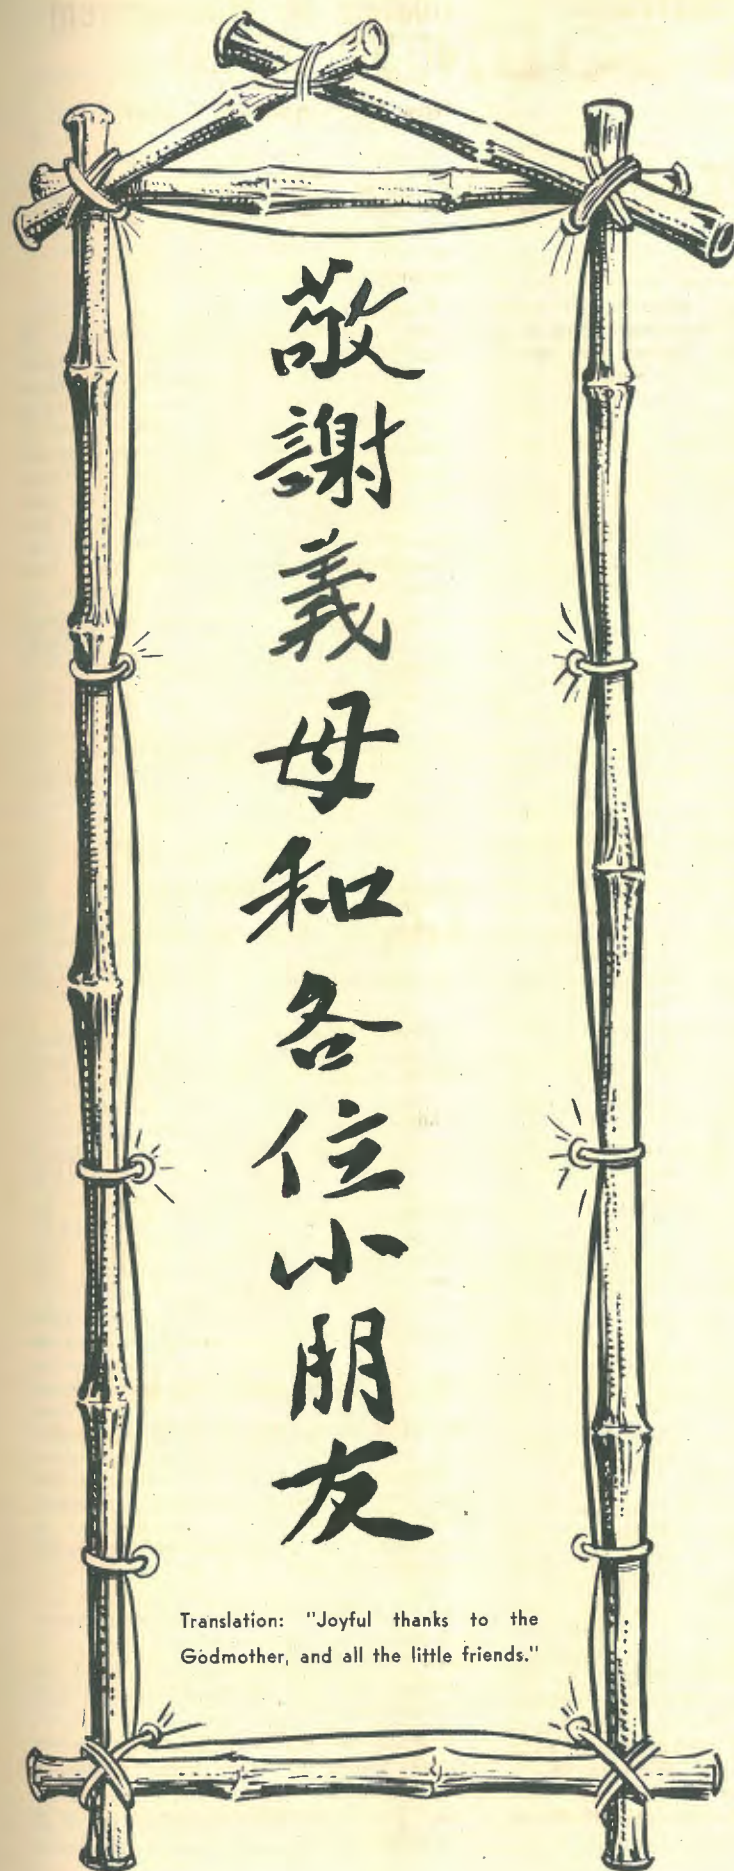 敬謝義母和各位小朋友
Translation: "Joyful thanks to the
Godmother, and all the little friends."